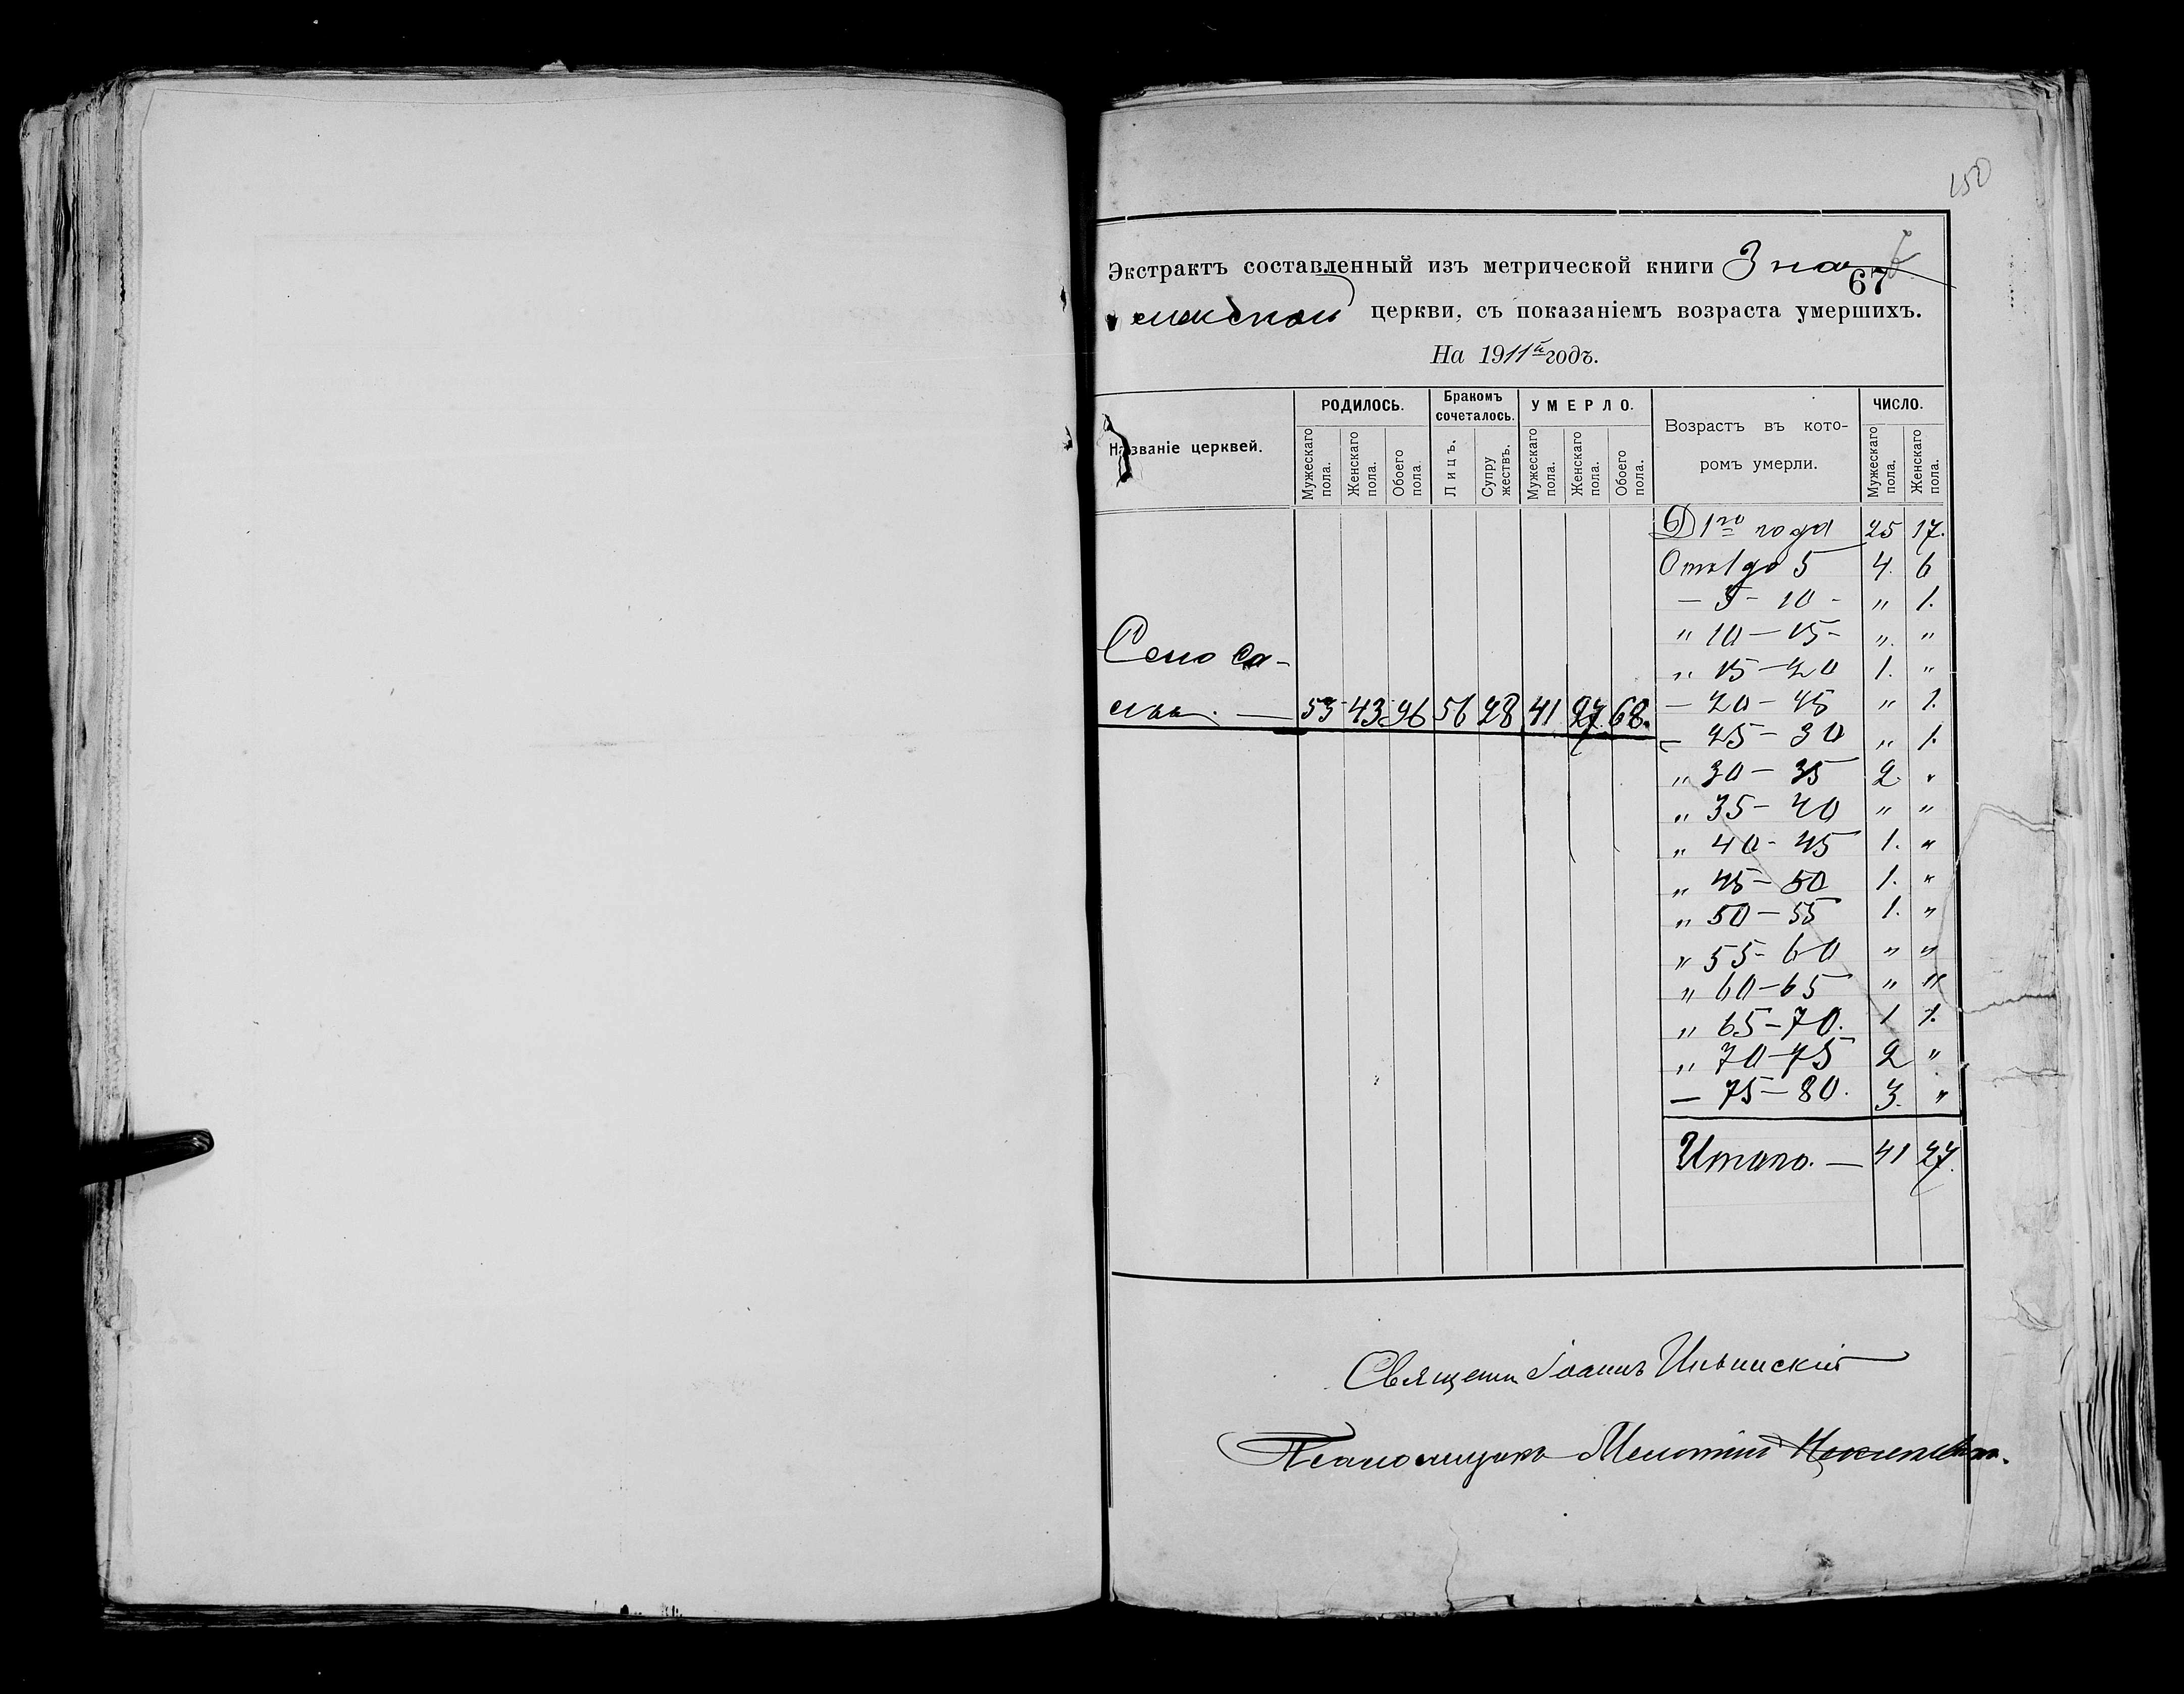 150
Экстрактъ составленный изъ метрической книги Зна-
67
менской церкви, съ показаніемъ возраста умершихъ.
На 1911й годъ.
Названіе церквей.
РОДИЛОСЬ.
Бракомъ сочеталось.
УМЕРЛО.
Возрастъ въ кото-
ромъ умерли.
ЧИСЛО.
Мужескаго пола.
Женскаго пола.
Обоего пола.
Лицъ.
Супружествъ.
Мужескаго пола.
Женскаго пола.
Обоего пола.
Мужескаго пола.
Женскаго пола.
До 1го года 25 17.
Отъ 1 до 5 4. 6
— 5 - 10 - " 1.
" 10 — 15 - ". "
Село Са-
" 15 — 20 1. "
53 43 96 56 28 41 27. 68.
— 20 — 25 " 1.
— 25 — 30 " 1.
" 30 — 35 2. "
" 35 — 40 " "
" 40 - 45 1. "
" 45 — 50 1. "
" 50 — 55 1. "
" 55 - 60 " "
" 60 — 65 " "
" 65 — 70. 1 1.
" 70 — 75 2 "
— 75 — 80. 3. "
Итого. — 41 27.
Священн Іоаннъ Ильинскій
Псаломщикъ Мелетій